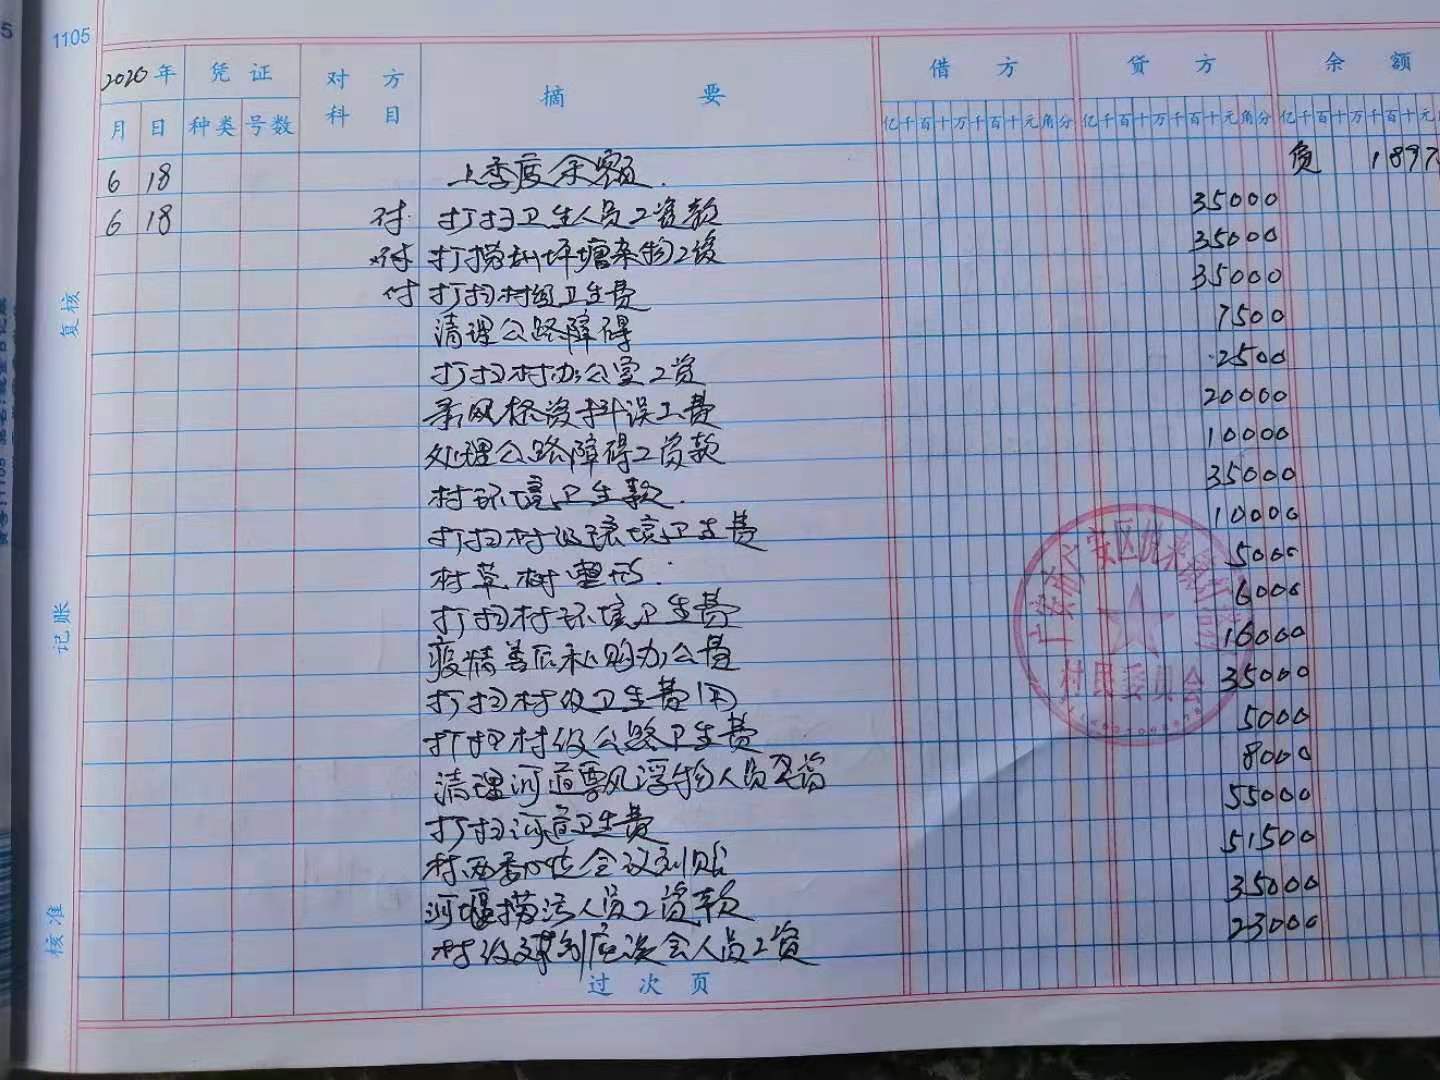 1105
2020年 凭证 对方科目 摘要 借方 贷方 余额
月 日 种类 号数 亿千百十万千百十元角分 亿千百十万千百十元角分 亿千百十万千百十元
6 18 上季度余额. 负 1897
6 18 付 打扫卫生人员工资款 35000
付 打捞 坪塘杂物工资 35000
付 打扫村级卫生费 35000
清理公路障碍 7500
打扫村办公室工资 2500
资料误工费 20000
处理公路障碍工资款 10000
村环境卫生款. 35000
打扫村级环境卫生费 10000
村草树整形. 5000
打扫村环境卫生费 6000
疫情 购办公费 16000
打扫村级卫生费用 35000
打扫村级公路卫生费 5000
清理河道飘浮物人员工资 8000
打扫河道卫生费 55000
村两委 会议补贴 51500
河堰捞渣人员工资款 35000
村级 会人员工资 23000
过次页
复核
记账
核准
村民委员会